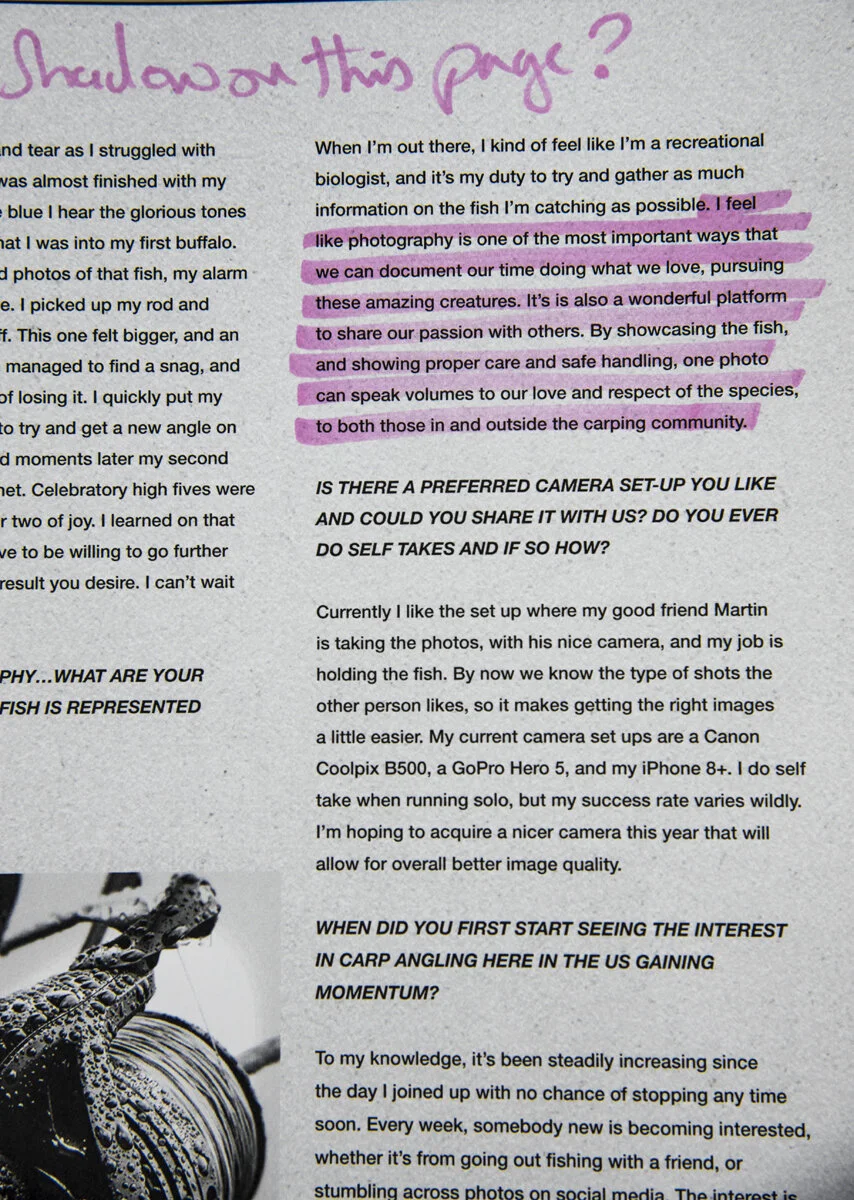 Shadow on this page?
and tear as I struggled with
was almost finished with my
blue I hear the glorious tones
that I was into my first buffalo.
photos of that fish, my alarm
I picked up my rod and
This one felt bigger, and an
managed to find a snag, and
of losing it. I quickly put my
to try and get a new angle on
moments later my second
net. Celebratory high fives were
two of joy. I learned on that
to be willing to go further
result you desire. I can't wait
PHY...WHAT ARE YOUR
FISH IS REPRESENTED
When I'm out there, I kind of feel like I'm a recreational
biologist, and it's my duty to try and gather as much
information on the fish I'm catching as possible. I feel
like photography is one of the most important ways that
we can document our time doing what we love, pursuing
these amazing creatures. It's is also a wonderful platform
to share our passion with others. By showcasing the fish,
and showing proper care and safe handling, one photo
can speak volumes to our love and respect of the species,
to both those in and outside the carping community.
IS THERE A PREFERRED CAMERA SET-UP YOU LIKE
AND COULD YOU SHARE IT WITH US? DO YOU EVER
DO SELF TAKES AND IF SO HOW?
Currently I like the set up where my good friend Martin
is taking the photos, with his nice camera, and my job is
holding the fish. By now we know the type of shots the
other person likes, so it makes getting the right images
a little easier. My current camera set ups are a Canon
Coolpix B500, a GoPro Hero 5, and my iPhone 8+. I do self
take when running solo, but my success rate varies wildly.
I'm hoping to acquire a nicer camera this year that will
allow for overall better image quality.
WHEN DID YOU FIRST START SEEING THE INTEREST
IN CARP ANGLING HERE IN THE US GAINING
MOMENTUM?
To my knowledge, it's been steadily increasing since
the day I joined up with no chance of stopping any time
soon. Every week, somebody new is becoming interested,
whether it's from going out fishing with a friend, or
stumbling across photos on social media. The interest is